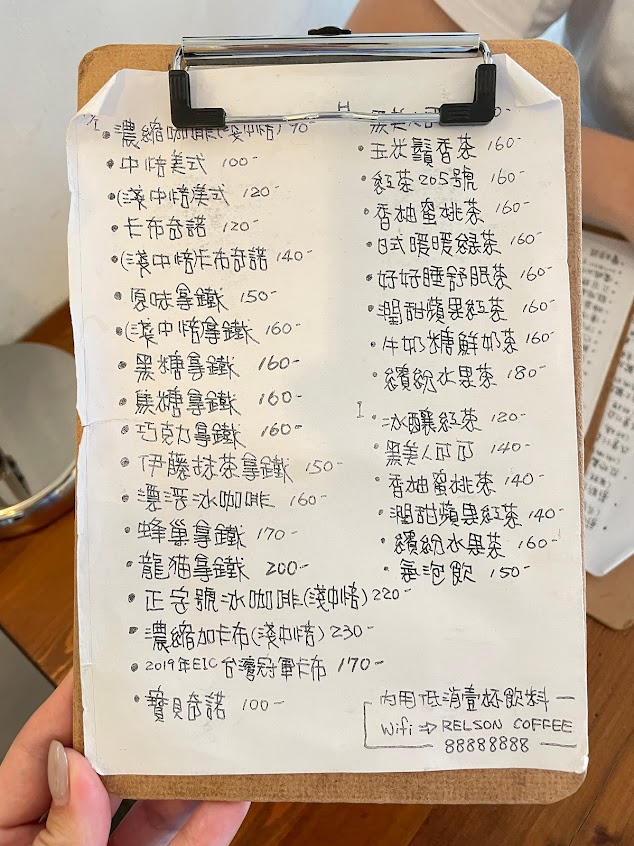 H/I
濃縮咖啡(淺中焙) 90-
中焙美式 100-
(淺中焙美式 120-
卡布奇諾 120-
(淺中焙卡布奇諾 140-
原味拿鐵 150-
(淺中焙拿鐵 160-
黑糖拿鐵 160-
焦糖拿鐵 160-
巧克力拿鐵 160-
伊藤抹茶拿鐵 150-
漂浮冰咖啡 160-
蜂巢拿鐵 170-
龍貓拿鐵 200-
正字號冰咖啡(淺中焙) 220-
濃縮加卡布(淺中焙) 230-
2019年EIC台灣冠軍卡布 170-
寶貝奇諾 100-
H
黑美人可
玉米鬚香茶 160-
紅茶205號 160-
香柚蜜桃茶 160-
日式暖暖綠茶 160-
好好睡舒眠茶 160-
潤甜蘋果紅茶 160-
牛奶糖鮮奶茶 160-
繽紛水果茶 180-
I
冰釀紅茶 120-
黑美人可可 140-
香柚蜜桃茶 140-
潤甜蘋果紅茶 140-
繽紛水果茶 160-
氣泡飲 150-
內用低消壹杯飲料
Wifi ⇒ RELSON COFFEE
88888888